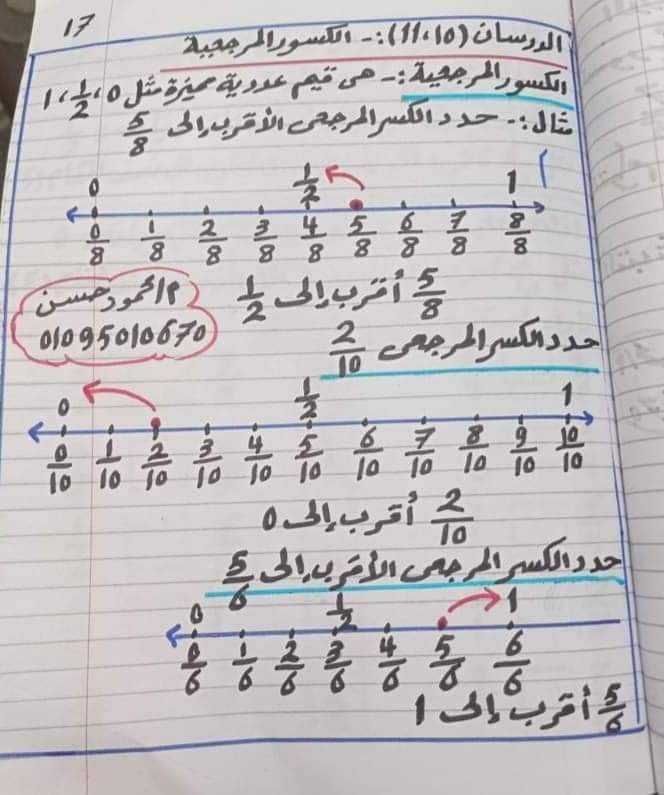 17
الدرسان (10، 11):- الكسور المرجعية
الكسور المرجعية:- هى قيم عددية مميزة مثل 0، 1/2، 1
مثال:- حدد الكسر المرجعى الأقرب إلى 5/8
0 1/2 1
0/8 1/8 2/8 3/8 4/8 5/8 6/8 7/8 8/8
5/8 أقرب إلى 1/2
م/محمود حسن
01095010670
حدد الكسر المرجعى 2/10
0 1/2 1
0/10 1/10 2/10 3/10 4/10 5/10 6/10 7/10 8/10 9/10 10/10
2/10 أقرب إلى 0
حدد الكسر المرجعى الأقرب إلى 5/6
0 1/2 1
0/6 1/6 2/6 3/6 4/6 5/6 6/6
5/6 أقرب إلى 1